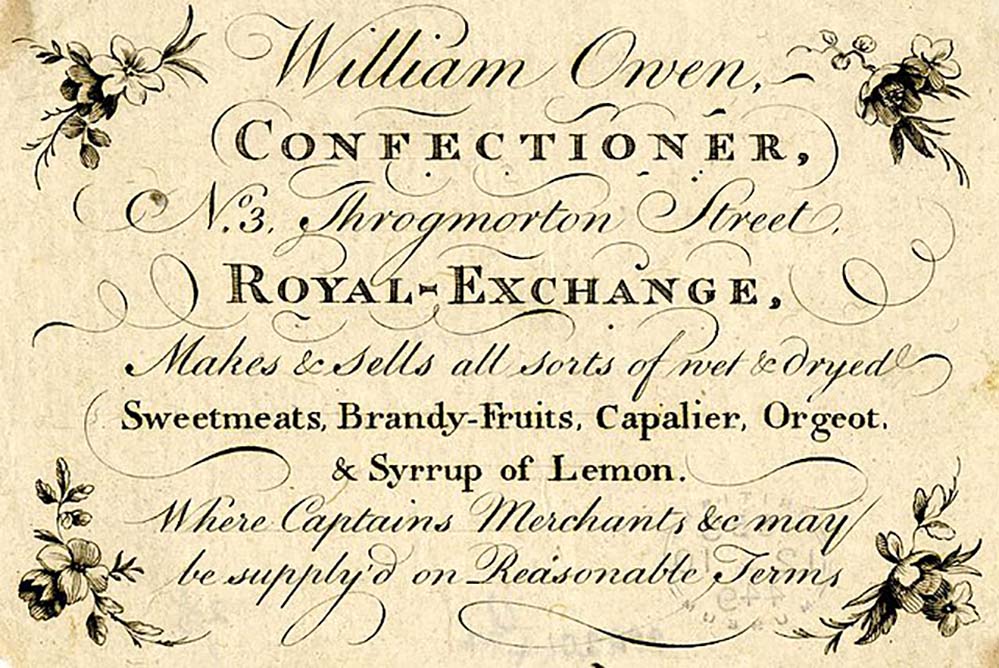 William Owen,
CONFECTIONER,
No. 3, Throgmorton Street,
ROYAL-EXCHANGE,
Makes & Sells all sorts of wet & dryed
Sweetmeats, Brandy-Fruits, Capalier, Orgeot,
& Syrrup of Lemon.
Where Captains Merchants &c may
be supply'd on Reasonable Terms